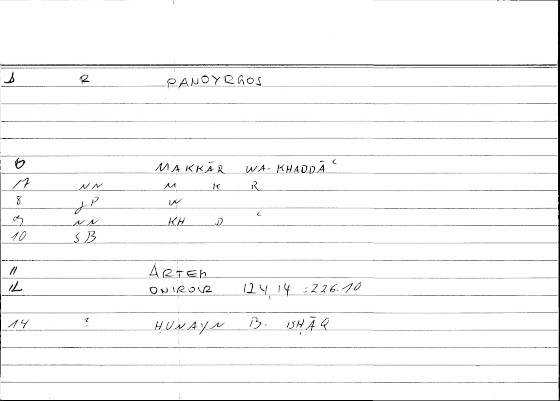 1 R PANOYRGOS
6 MAKKĀR WA-KHADDĀʿ
7 NN M K R
8 JP W
9 NN KH D ʿ
10 SB
11 ARTEM
12 ONIROCR 124,14 = 226.10
14 : ḤUNAYN B. ISḤĀQ